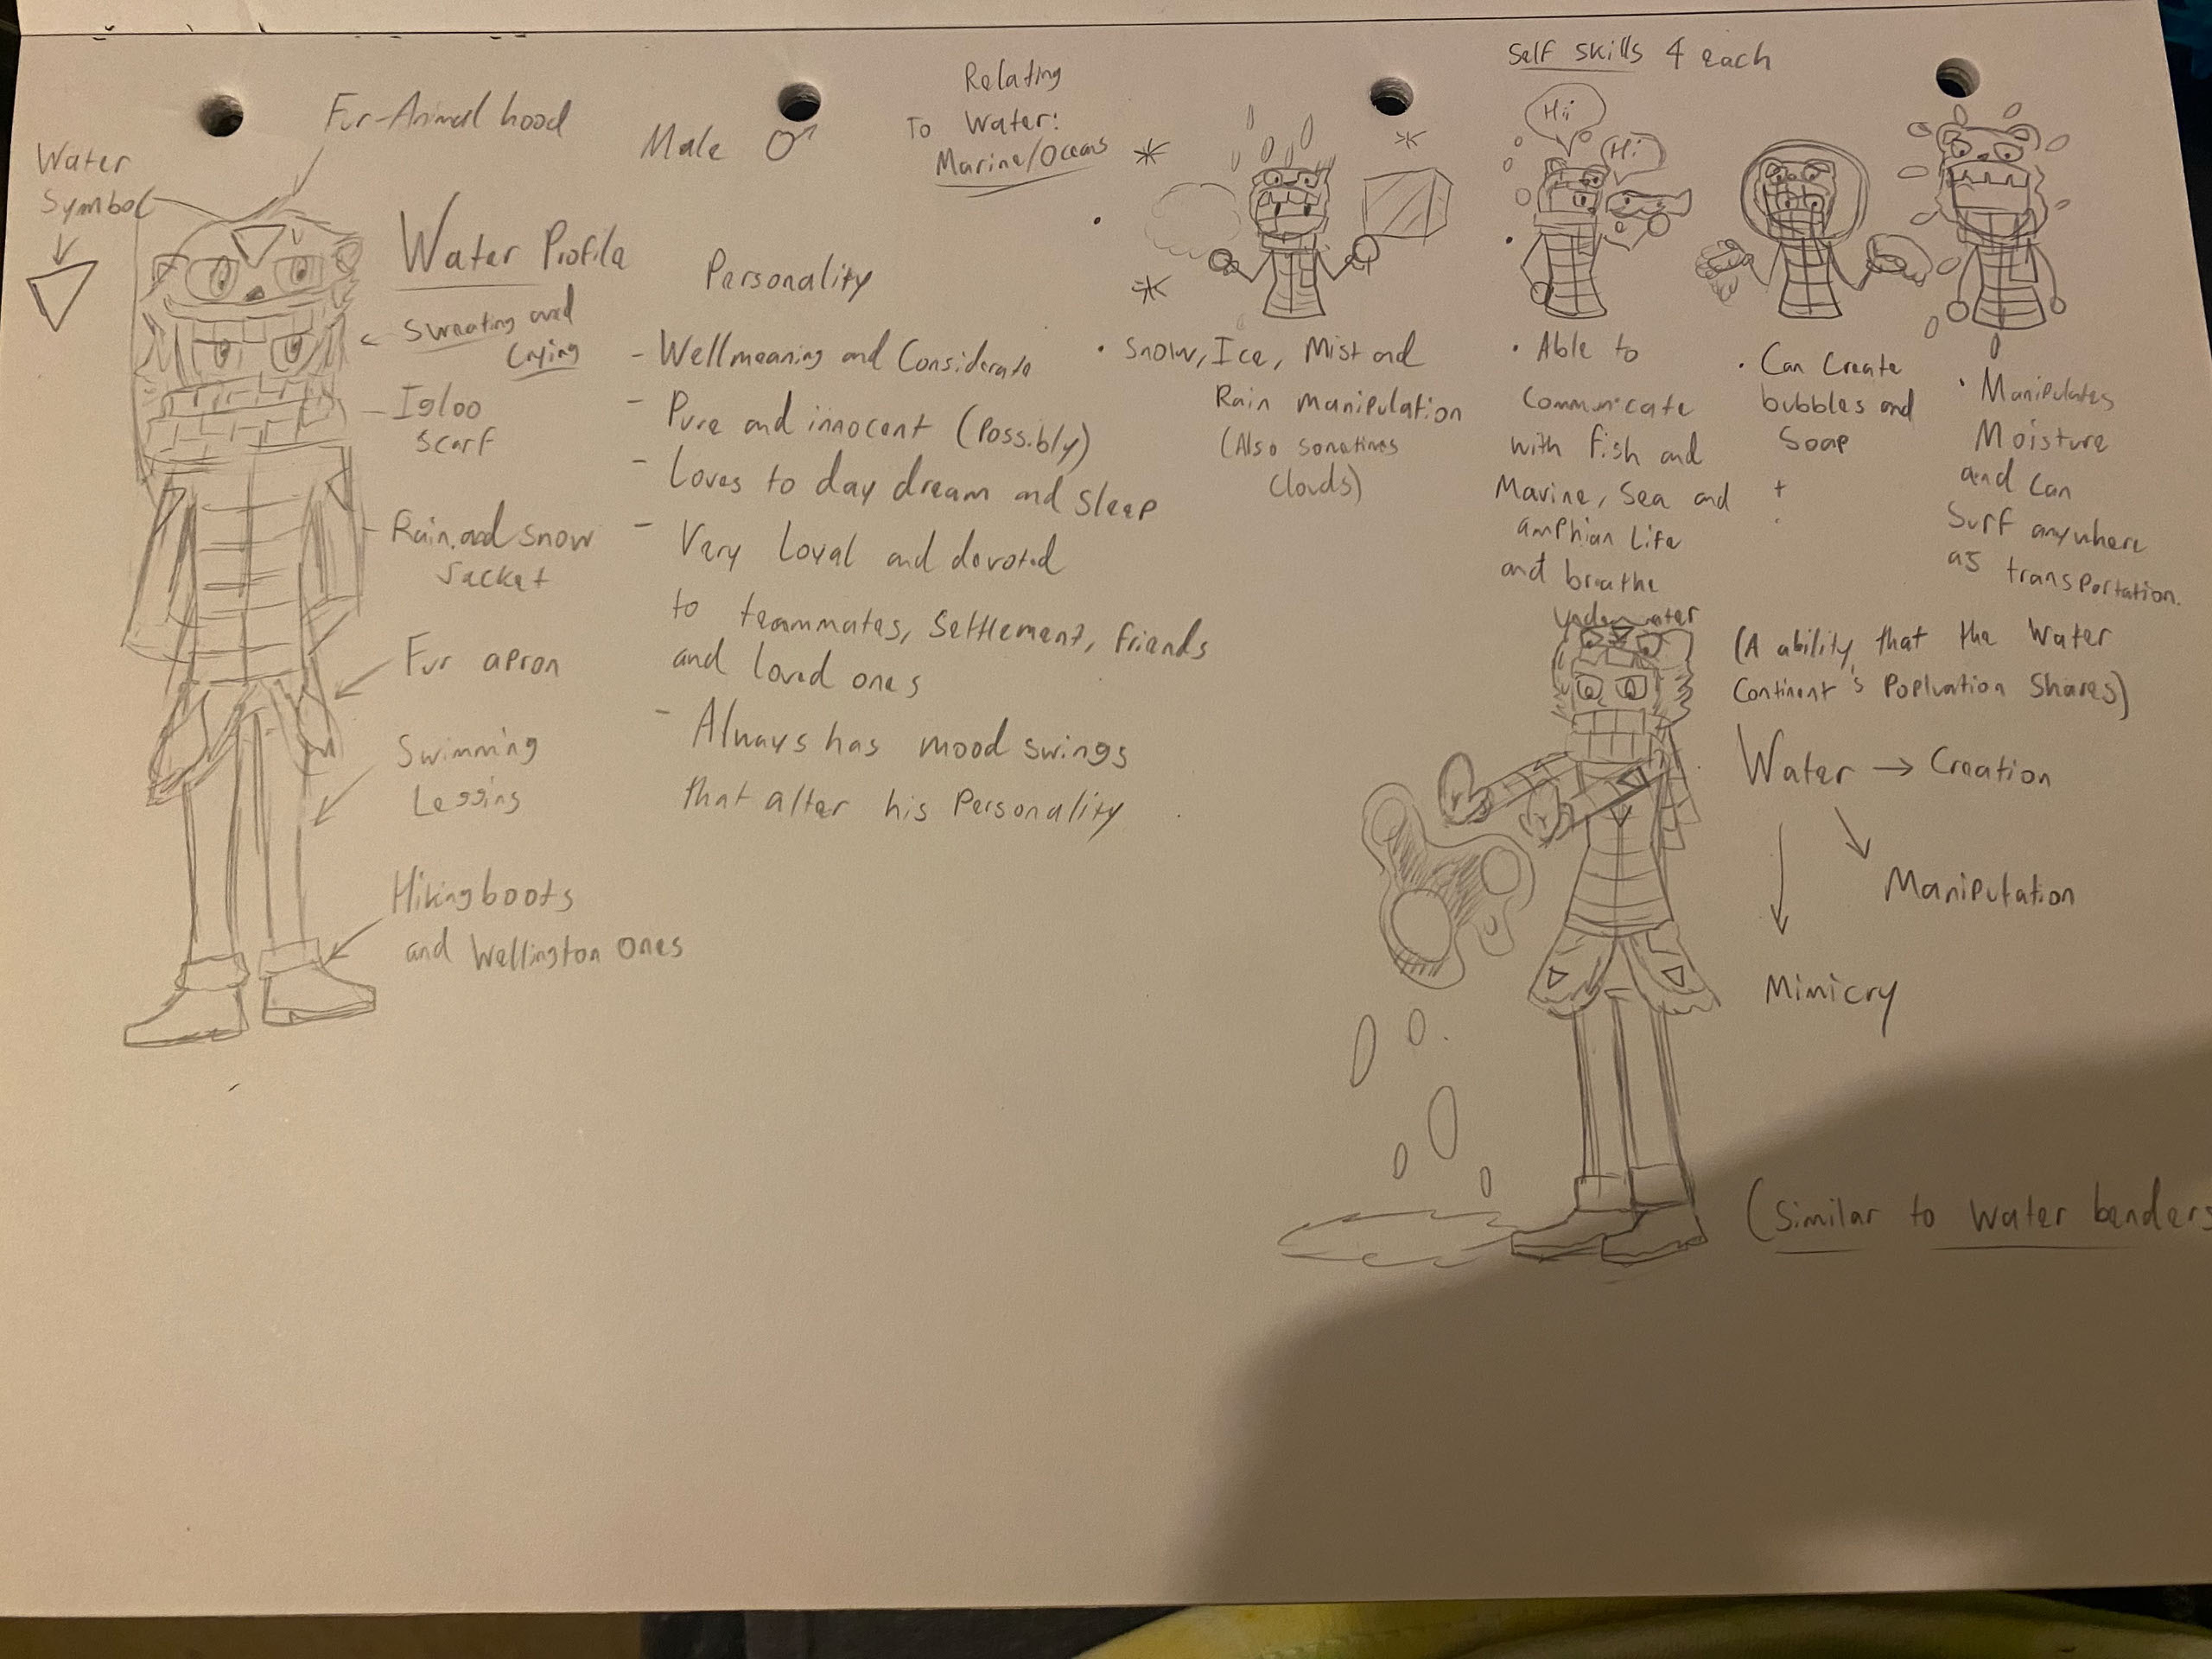 Self skills 4 each
Relating
To Water:
Marine/Oceans
Fur-Animal hood
Male ♂
Water
Symbol
Water Profile
Sweating and
Crying
Igloo
Scarf
Rain and snow
Jacket
Fur apron
Swimming
Leggins
Hiking boots
and Wellington ones
Personality
- Wellmeaning and Considerate
- Pure and innocent (Possibly)
- Loves to day dream and sleep
- Very Loyal and devoted
to teammates, Settlement, friends
and loved ones
- Always has mood swings
that alter his Personality
• Snow, Ice, Mist and
Rain manipulation
(Also sometimes
Clouds)
Hii
Hi
• Able to
Communicate
with fish and
Marine, Sea and
amphian Life
and breathe
Underwater
• Can Create
bubbles and
Soap
+
• Manipulates
Moisture
and can
Surf anywhere
as transportation.
(A ability that the Water
Continent's Popluation Shares)
Water → Creation
Manipulation
Mimicry
(Similar to water benders